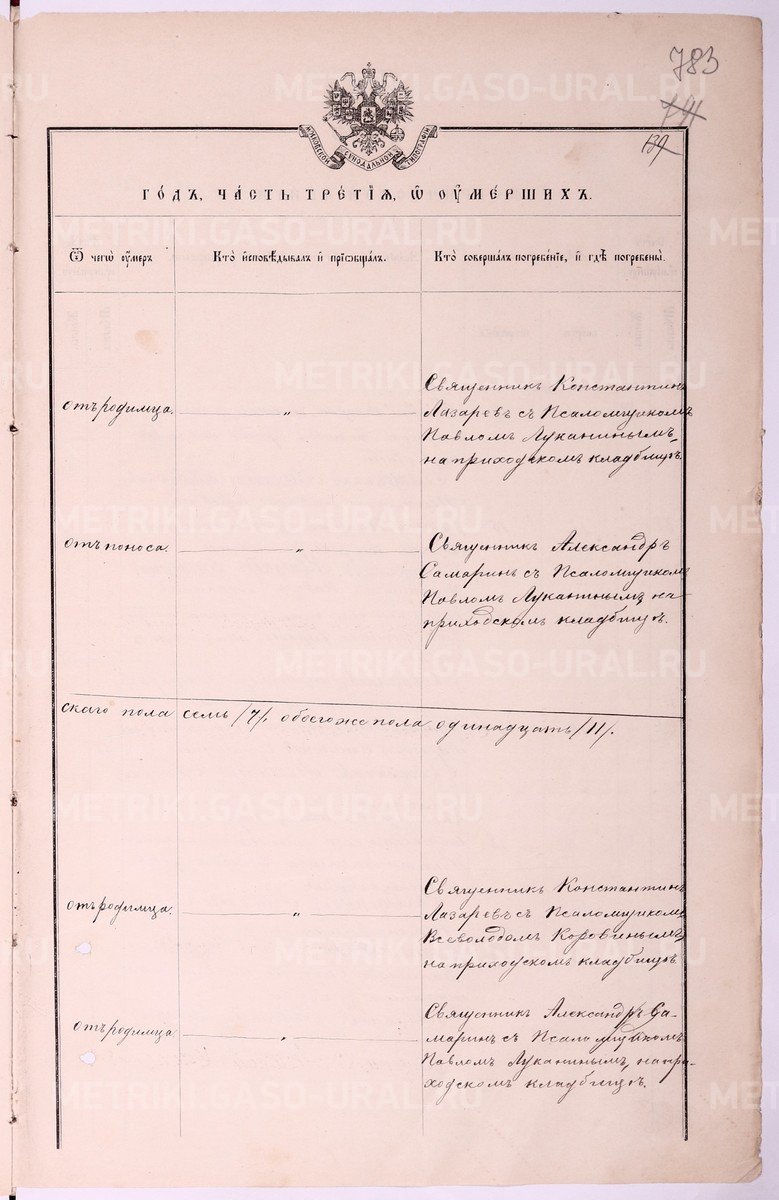 783
741
139
МОСКОВСКОЙ СѴНОДАЛЬНОЙ ТИПОГРАФІИ
ГО́ДЪ, ЧА́СТЬ ТРЕ́ТІѦ, Ѡ҆ ОУ҆МЕ́РШИХЪ.
Ѿ чегѡ̀ оу҆́меръ
Кто̀ и҆сповѣ́дывалъ и҆ прїѻбща́лъ.
Кто̀ соверша́лъ погребе́нїе, и҆ гдѣ̀ погребены̀.
отъ родимца.
„
Священникъ Константинъ
Лазаревъ съ Псаломщикомъ
Павломъ Луканинымъ,
на приходскомъ кладбищѣ.
отъ поноса.
„
Священникъ Александръ
Самаринъ съ Псаломщикомъ
Павломъ Луканинымъ, на
приходскомъ кладбищѣ.
скаго пола семь /7/, обоего же пола одинадцать /11/.
отъ родимца.
„
Священникъ Константинъ
Лазаревъ съ Псаломщикомъ
Всеволодомъ Коровинымъ,
на приходскомъ кладбищѣ.
отъ родимца
„
Священникъ Александръ Са-
маринъ съ Псаломщикомъ
Павломъ Луканинымъ, на при-
ходскомъ кладбищѣ.
METRIKI.GASO-URAL.RU